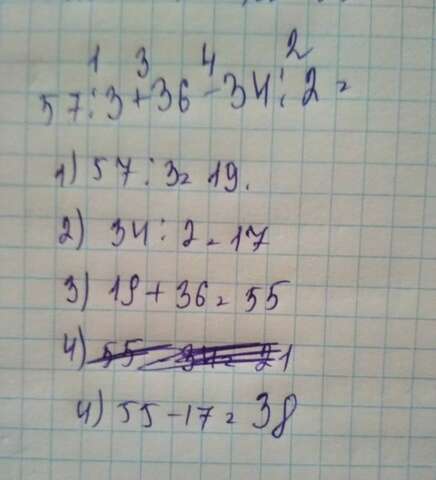 1 3 4 2
57:3+36-34:2=
1) 57:3=19.
2) 34:2=17
3) 19+36=55
4) 55-34=21
4) 55-17=38